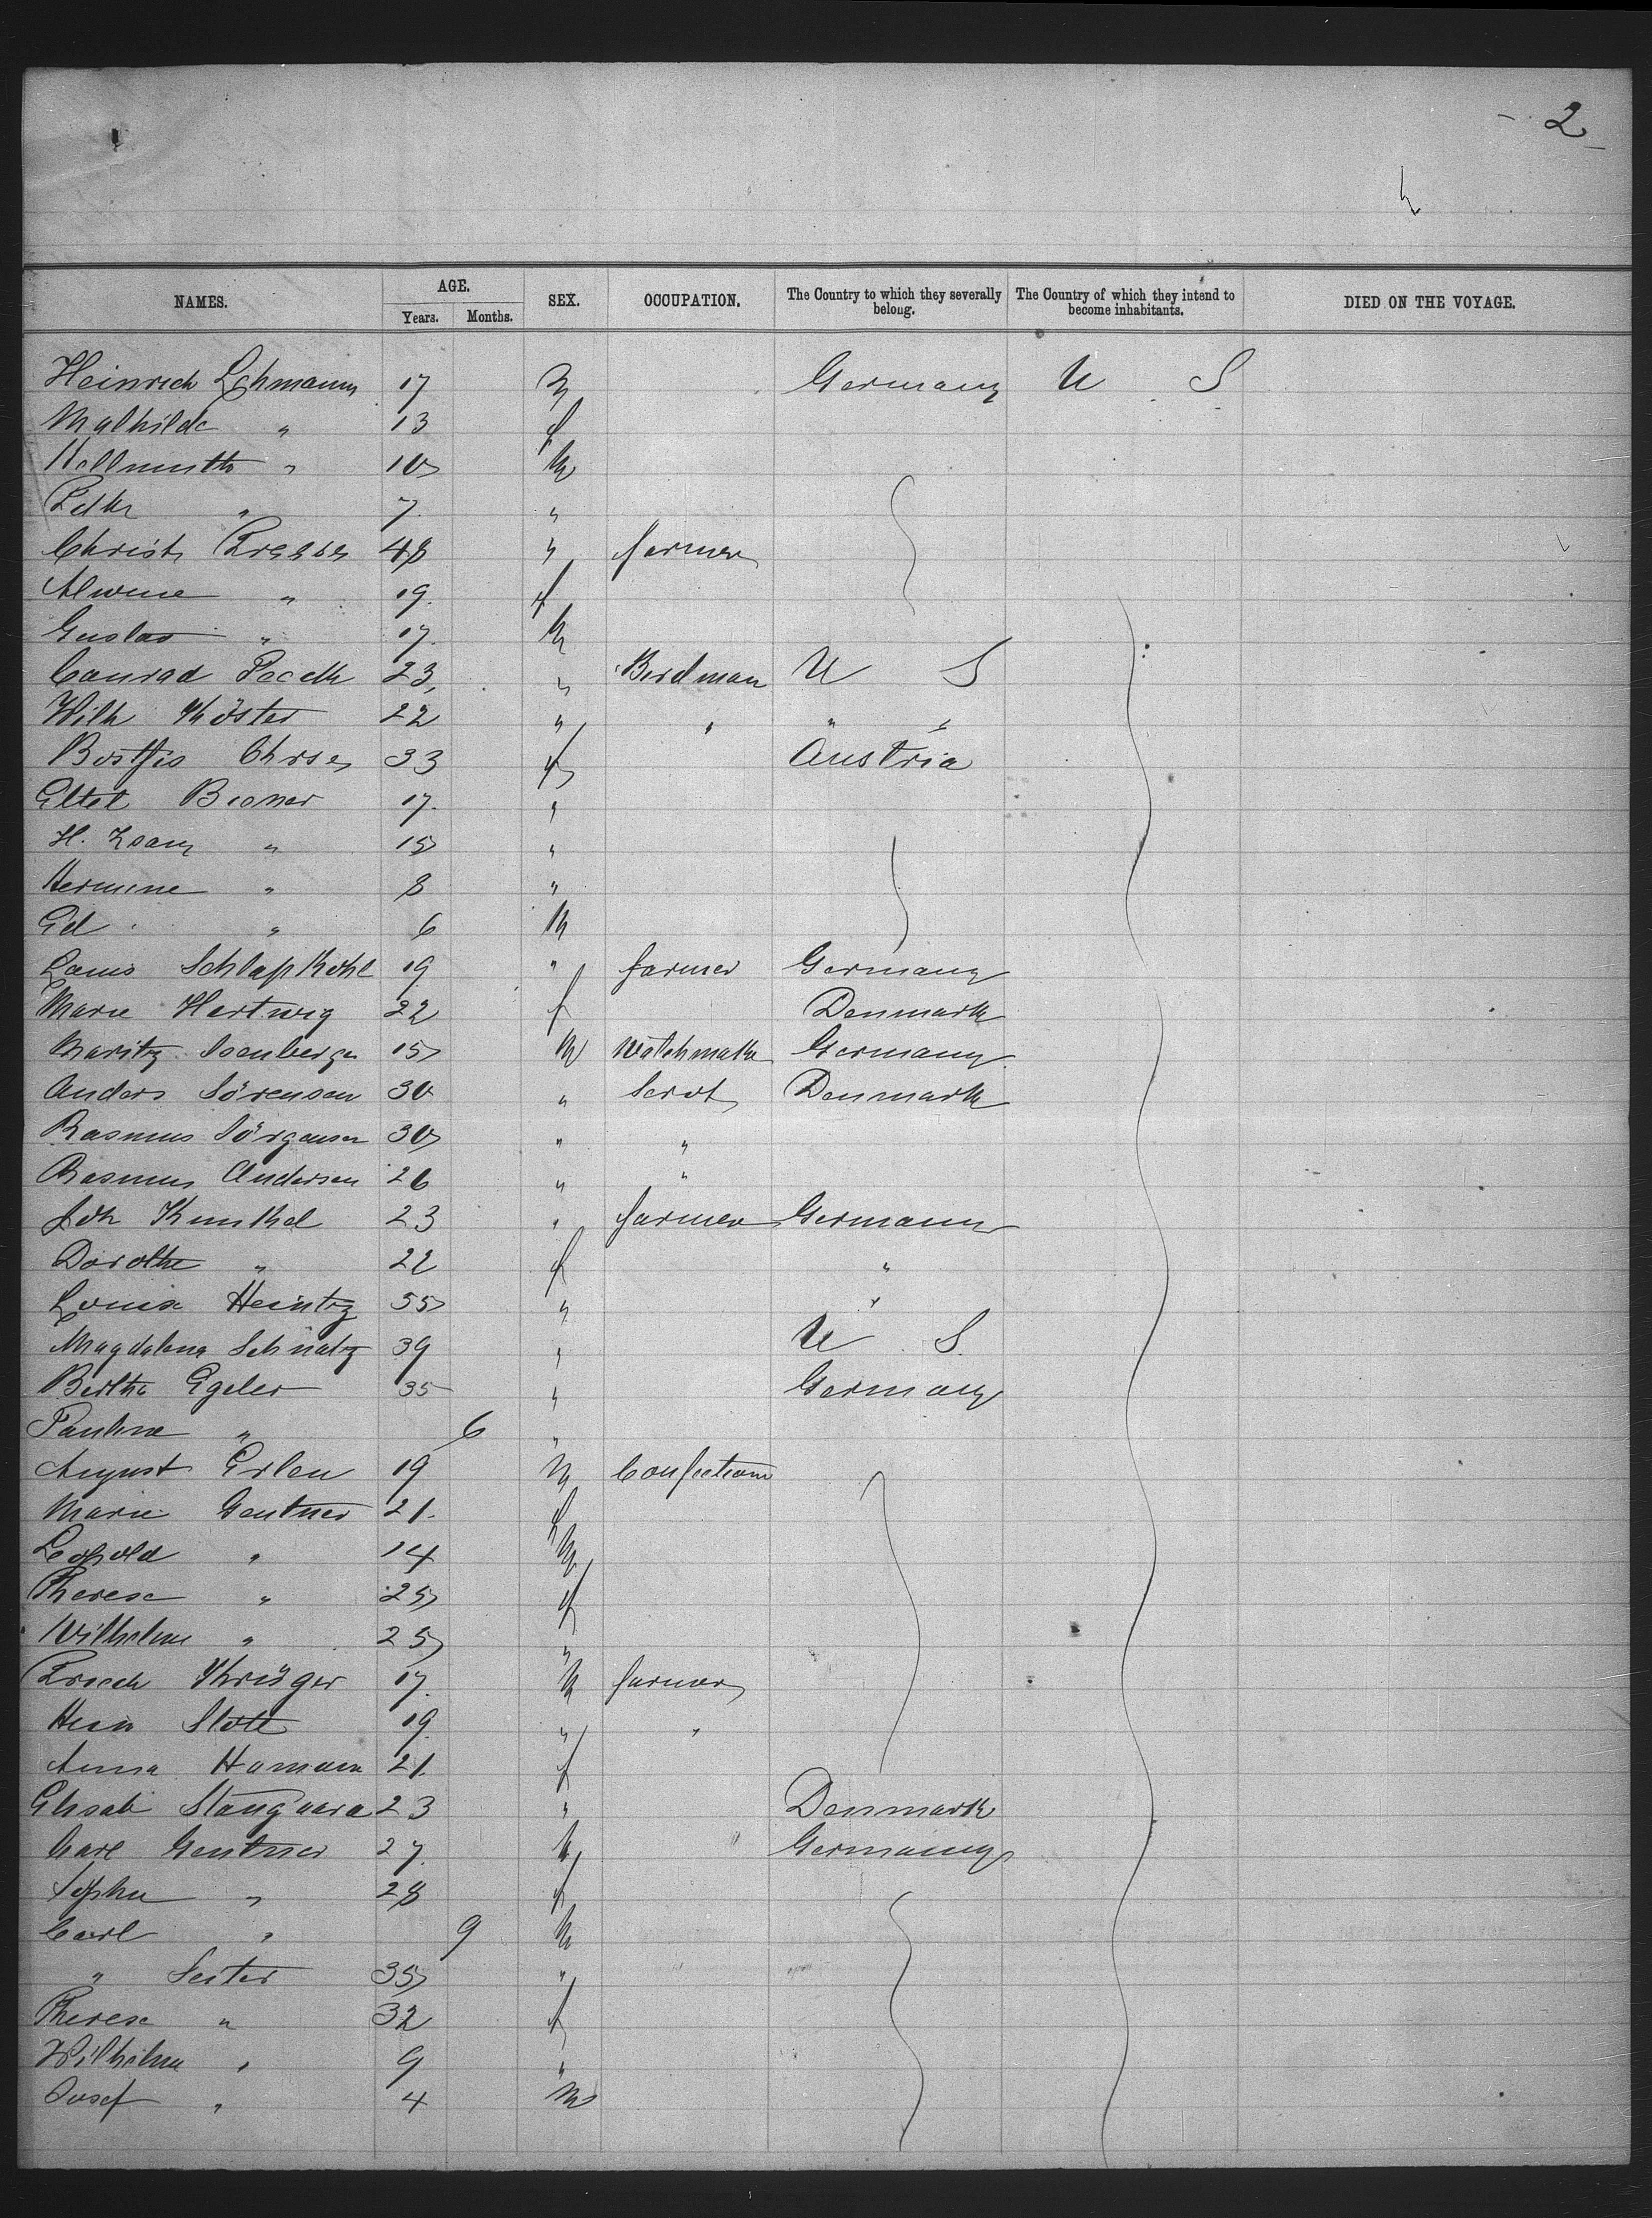 - 2
NAMES. AGE. SEX. OCCUPATION. The Country to which they severally belong. The Country of which they intend to become inhabitants. DIED ON THE VOYAGE.
Years. Months.
Heinrich Lehmann 17 M Germany U S
Mathilde " 13 f
Hellmuth " 10 M
" 7 "
Christ 48 " farmer
Alwine " 19 f
Gustav " 17 M
Conrad 23 " Birdman U S
Wilh Köster 22 " " " "
33 f Austria
17 "
H. " 15 "
Hermine " 8 "
Ed " 6 M
Louis Schlapkohl 19 " farmer Germany
Marie Hartwig 22 f Denmark
Moritz Isenberger 15 M Watchmake Germany
Anders Sörensen 30 " Servt Denmark
Rasmus Jörgensen 30 " "
Rasmus Andersen 26 " "
Joh Kunkel 23 " farmer Germany
Dorothe " 22 f "
Louise Heintz 55 " "
Magdalena Schnatz 39 " U S
Bertha Egeler 35 " Germany
Pauline " 6 "
August Erlen 19 M Confection
Marie Gentner 21 f
Leopold " 14 M
Therese " 25 f
Wilhelm " 25 "
Krüger 17 M farmer
Stolt 19 " "
Anna Hamann 21 f
Elisab 23 " Denmark
Carl Gentner 27 M Germany
Sophie " 28 f
Carl " 9 M
" Seiter 35 "
Therese " 32 f
Wilhelm " 9 "
Josef " 4 M